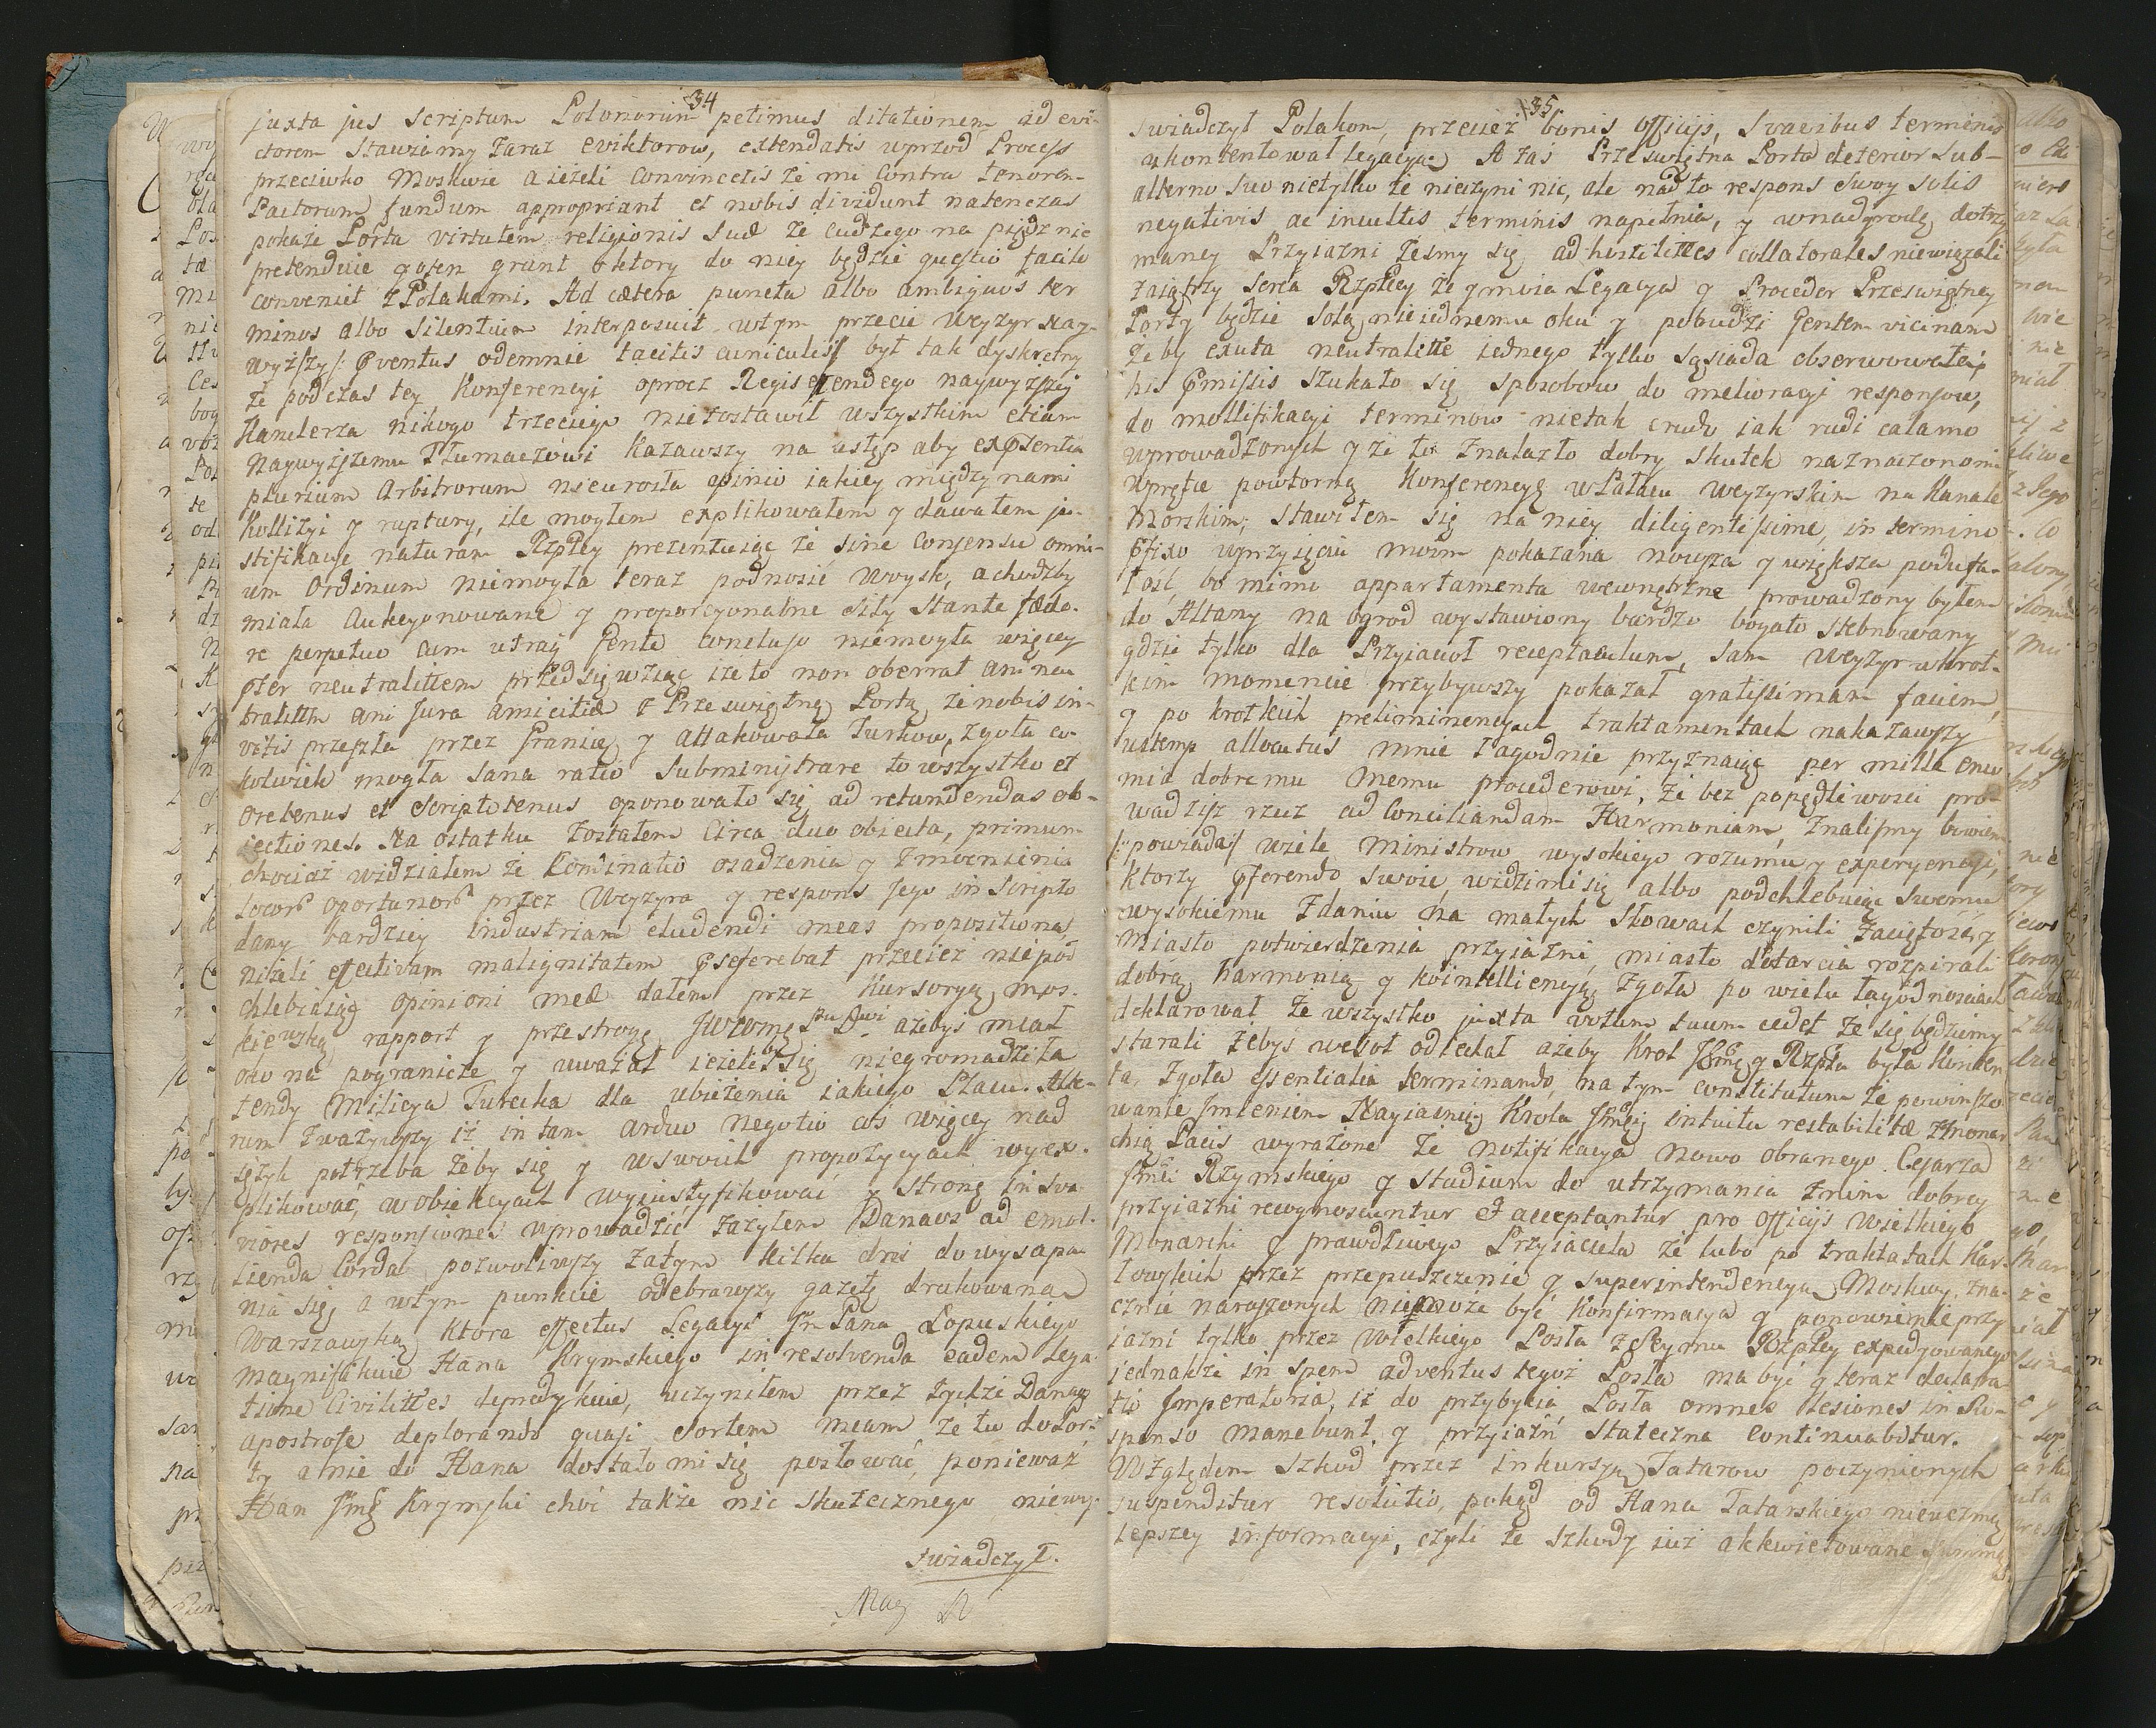 34
juxta jus scriptum Polonorum petimus citationem ad evi-
ctorem stawiemy zaraz eviktorow, ostendatis wprzod Process
przeciwko Moskwie a ieżeli convincetis że mi contra tenorem
Pactorum fundum appropriant et nobis dividunt natenczas
pokaże Porta virtutem religionis suæ że cudzego na piędz nie
pretenduie y oten grunt o ktory do niey będzie questio facile
conveniet z Polakami. Ad cætera puncta albo ambiguos ter
minos albo silentium interposuit wtym przecie Wezyr nay-
wyższy /: præventus odemnie tacitis cuniculis :/ był tak dyskretny
że podczas tey Konferencyi oprocz Regis effendego naywyższey
Kanclerza nikogo trzeciego nie zostawił wszystkim etiam
Naywyższemu Tłumaczowi kazawszy na ustęp aby ex præsentia
plurium Arbitrorum nieurosła opinio iakiey między nami
Kollizyi y ruptury, ile mogłem explikowałem y dawałem ju-
stifikacye naturam Rzpltey prezentuiąc że sine consensu omni-
um Ordinum niemogła teraz podnosić Woysk, a chodźby
miała aukcyonowane y proporcyonalne siły stante fæde-
re perpetuo cum utraq gente concluso niemogła więcey
præter neutralitatem przedsięwziąć iż eto non oberrat ani neu
tralitatem ani Jura amicitiæ z Prześwietną Portą, że nobis in-
vitis przeszła przez Granicę y attakowała Turkow, zgoła co-
kolwiek mogła sana ratio subministrare to wszystko et
oretenus et scriptotenus oponowało się ad retundendas ob-
iectiones. Na ostatku zostałem circa duo obiecta, primum
chociaż widziałem że kominatio osadzenia y zmocnienia
locorum oportunorum przez Wezyra y respons Jego in scripto
dany bardziey industriam eludendi meas propositiones
niżeli effectivam malignitatem præseferebat przecież niepod
chlebiaiąc opinioni meæ dałem przez kursoryą Mos-
kiewską rapport y przestrogę JWJomę Panu Dwi ażebyś miał
oko na pogranicze y uważał ieżeliby się niegromadziła
tendy Milicya Turecka dla ubieżenia iakiego Placu. Alte-
rum zważywszy iż in tam arduo negotio coś więcey nad
język potrzeba żeby się y w swoich propozycyach wyex-
plikować, w obiekcyach wyiustyfikować y stronę in sua-
viores responsiones wprowadzić zażyłem Danaos ad emol-
lienda Corda pozwoliwszy zatym kilka dni do wysapa-
nia się, a wtym punkcie odebrawszy gazetę drukowaną
Warszawską ktora effectus Legacyi Jm Pana Łopuskiego
magnifikuie Hana Krymskiego in resolvenda eadem Lega-
tione Civilitates depredykuie, uczyniłem przez tychże Danaos
apostrofe deplorando quasi sortem meam że tu do Por-
ty a nie do Hana dostało mi się posłować, ponieważ
Han Jmć Krymski choć także nic skutecznego niewy-
swiadczył.
35
swiadczył Polakom, przecież bonis officijs, suavibus terminis
ukontentował legacyą A zaś Przeswiętna Porta deterior sub-
alterno suo nietylko że nieczyni nic, ale nad to respons swoy solis
negativis ac incultis terminis napełnia, y wnadgrodę dotrzy
maney Przyiazni żeśmy się ad hostilitates collatorales niewiązali
zaiątrzy serca Rzpltey że y moia Legacya y Proceder Prześwietney
Porty będzie solą nieiednemu oku y pobudzi gentem vicinam
żeby exuta neutralitate iednego tylko sąsiada obserwowała,
his præmissis szukało się sposobow do melioracyi responsow,
do mollifikacyi terminow nietak crudo iak rudi calamo
wprowadzonych y że to znalazło dobry skutek naznaczono mi
wprętce powtorną Konferencyę w Pałacu Wezyrskim na Kanale
Morskim, stawiłem się na niey diligentissime, in termino
præfixo w przyięciu moim pokazana nowsza y większa poufa-
łość, bo mimo appartamenta wewnętrzne prowadzony byłem
do Altany na ogrod wystawiony bardzo bogato stebnowany
gdzie tylko dla Przyiacioł receptaculum, sam Wezyr wkrot-
kim momencie przybywszy pokazał gratissimam faciem,
y po krotkich preliminencyach traktamentach nakazawszy
ustemp allocutus mnie łagodnie przyznaiąc per mille enco
mia dobremu memu procederowi, że bez popędliwości pro-
wadzisz rzecz ad Conciliandam Harmoniam, znaliśmy bowiem
/: powiada :/ wiele Ministrow wysokiego rozumu y experyencyi,
ktorzy præferendo swoie widzimisię albo podchlebuiąc swemu
wysokiemu zdaniu na małych słowach czynili zaciętość, y
miasto potwierdzenia przyiaźni, miasto dotarcia rozpierali
dobrą harmonią y kointelliencyą, zgoła po wielu łagodnościach
deklarował że wszystko juxta votum tuum cedet że się będziemy
starali żebyś wesoł odiechał ażeby Krol Jmć y Rzplta była konten
ta, zgoła essentialia terminando, na tym constitutum że powinszo
wanie Jmieniem Nayiaśniey Krola Jmci intuitu restabilitæ z Monar
chią Pacis wyrażone że notifikacya nowo obranego Cesarza
Jmci Rzymskiego y studium do utrzymania z nim dobrey
przyiazni recognoscuntur & acceptantur pro officijs wielkiego
Monarchi y prawdziwego Przyiaciela że lubo po traktatach Kar-
łowskich przez przepuszczenie y superintendencyą Moskwy, zna-
cznie naruszonych niemoże być konfirmacya y ponowienie przy
iaźni tylko przez Wielkiego Posła z Seymu Rzpltey expedyowanego
jednakże in spem adventus tegoż Posła ma być y teraz declara-
tio Imperatoria, iż do przybycia Posła omnes lesiones in Su-
spenso manebunt, y przyiaźń stateczna continuabitur.
Względem szkod przez inkursyą Tatarow poczynionych
suspenditur resolutio, pokąd od Hana Tatarskiego niewezmą
lepszey informacyi, czyli te szkody iuż akkwietowane